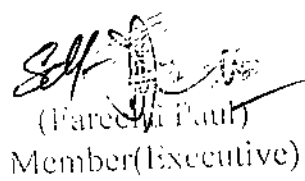 Sd/-
(Fareeha Paul)
Member(Executive)